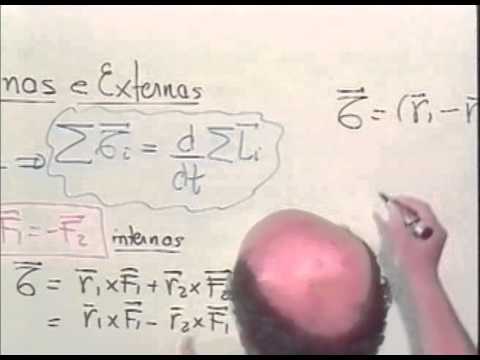 nas e Externas
⇒ Σ τ⃗ᵢ = d/dt Σ L⃗ᵢ
F⃗₁ = -F⃗₂ internas
τ⃗ = r⃗₁ × F⃗₁ + r⃗₂ × F⃗₂
= r⃗₁ × F⃗₁ - r⃗₂ × F⃗₁
τ⃗ = (r⃗₁ - r⃗